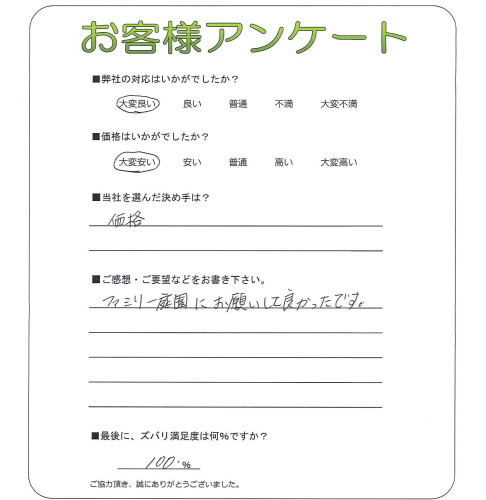 お客様アンケート
■弊社の対応はいかがでしたか？
大変良い 良い 普通 不満 大変不満
■価格はいかがでしたか？
大変安い 安い 普通 高い 大変高い
■当社を選んだ決め手は？
価格
■ご感想・ご要望などをお書き下さい。
ファミリー庭園にお願いして良かったです。
■最後に、ズバリ満足度は何%ですか？
100.%
ご協力頂き、誠にありがとうございました。